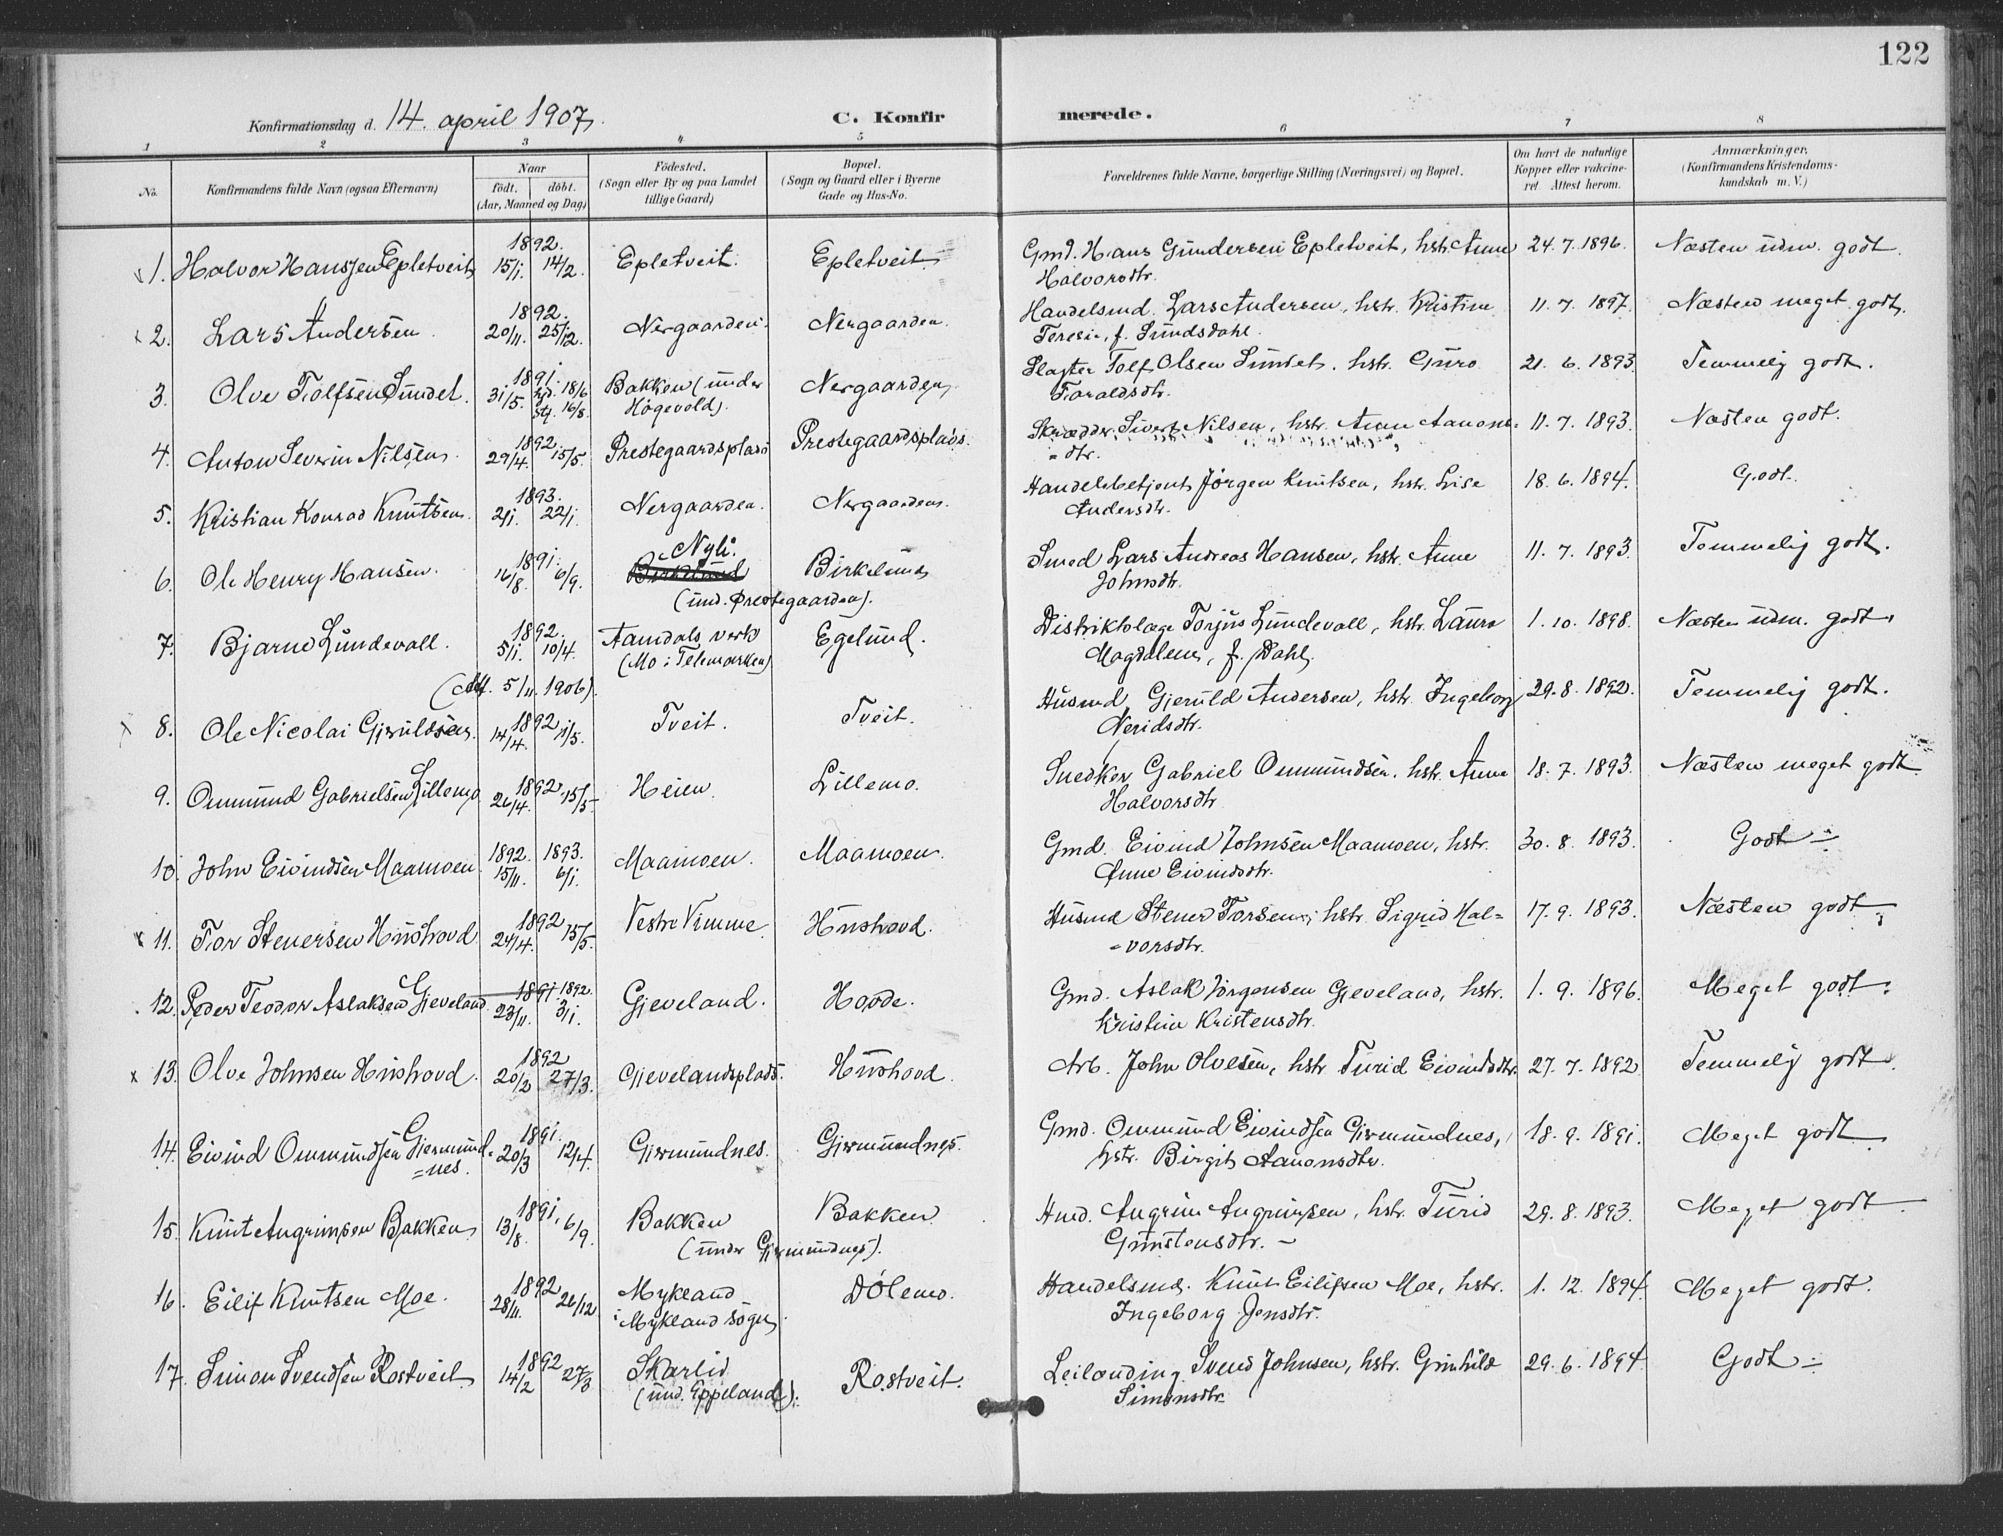 122
Konfirmationsdag d. 14. april 1907.
C. Konfirmerede.
1 2 3 4 5 6 7 8
No. Konfirmandens fulde Navn (ogsaa Efternavn) Naar født. døbt. (Aar, Maaned og Dag) Fødested. (Sogn eller By og paa Landet tillige Gaard) Bopæl. (Sogn og Gaard eller i Byerne Gade og Hus-No. Forældrenes fulde Navne, borgerlige Stilling (Næringsvei) og Bopæl. Om havt de naturlige Kopper eller vakcineret. Attest herom. Anmærkninger. (Konfirmandens Kristendomskundskab m. V.)
1. Halvor Hanssen Epletveit 1892. 15/1. 14/2. Epletveit. Epletveit Gmd. Hans Gundersen Epletveit, hstr. Anne Halvorsdtr. 24. 7. 1896. Næsten udm. godt.
2. Lars Andersen 1892. 20/11. 25/12. Nergaarden. Nergaarden. Handelsmd. Lars Andersen, hstr. Kristine Teresie, f. Sundsdahl. 11. 7. 1897. Næsten meget godt.
3. Olve Tolfsen Sundet. 1891. 31/5. 18/6 16/8. Bakken (under Høgevold). Nergaarden. Slagter Tolf Olsen Sundet, hstr. Guro Taraldsdtr. 21. 6. 1893. Temmelig godt.
4. Anton Severin Nilsen. 1892. 29/4. 15/5. Prestegaardsplads Prestegaardsplads. Skrædder Sivert Nilsen, hstr. Anne Aanons-dtr. 11. 7. 1893. Næsten godt.
5. Kristian Konrad Knutsen. 1893. 2/1. 22/1. Nergaarden. Nergaarden. Handelsbetjent Jørgen Knutsen, hstr. Lise Andersdtr. 18. 6. 1894. Godt.
6. Ole Henry Hansen. 1891. 16/8. 6/9. Nyli. Birkelund (und. Prestegaarden). Birkelund Smed Lars Andreas Hansen, hstr. Anne Johnsdtr. 11. 7. 1893. Temmelig godt.
7. Bjarne Lundevall. 1892. 5/1. 10/4. Aamdals verk (Mo i Telemarken) Egelund. Distriktslæge Torjus Lundevall, hstr. Laura Magdalene, f. Dahl. 1. 10. 1898. Næsten udm. godt.
( 5/11. 1906).
8. Ole Nicolai Gjeruldsen 1892 14/4. 1/5. Tveit. Tveit. Husmd. Gjeruld Andersen, hstr. Ingeborg Neridsdtr. 29. 8. 1892. Temmelig godt.
9. Ommund Gabrielsen Lillemo 1892 26/4. 15/5. Heien. Lillemo. Snedker Gabriel Ommundsen, hstr. Anne Halvorsdtr. 18. 7. 1893. Næsten meget godt
10. John Eivindsen Maamoen 1892. 15/11. 1893. 6/1. Maamoen. Maamoen. Gmd. Eivind Johnsen Maamoen, hstr. Anne Eivindsdtr. 30. 8. 1893. Godt
11. Tor Stenersen Hushovd 1892 24/4. 15/5. Vestre Vimme. Hushovd. Husmd Stener Torsen, hstr. Sigrid Hal=-vorsdtr. 17. 9. 1893. Næsten godt
12. Peder Teodor Aslaksen Gjeveland 1891 23/11. 1892. 3/1. Gjeveland. Hovde. Gmd. Aslak Jørgensen Gjeveland, hstr. Kristine Kristensdtr. 1. 9. 1896. Meget godt.
13. Olve Johnsen Hushovd. 1892 20/2 27/3. Gjevelandsplads. Hushovd. Arb. John Olvesen, hstr. Turid Eivindsdtr. 27. 7. 1892. Temmelig godt.
14. Eivind Ommundsen Gjermund=nes. 1891. 20/3 12/4. Gjermundnes. Gjermundnes. Gmd. Ommund Eivindsen Gjermundnes, hstr. Birgit Aanonsdtr. 18. 9. 1891. Meget godt.
15. Knut Angrimsen Bakken 1891. 13/8. 6/9. Bakken (under Gjermundnes). Bakken Husmd. Angrim Angrimsen, hstr. Turid Gunstensdtr. 29. 8. 1893. Meget godt.
16. Eilif Knutsen Moe. 1892 28/11. 26/12 Mykland i Mykland sogn. Dølemo. Handelsmd. Knut Eilifsen Moe, hstr. Ingeborg Jensdtr. 1. 12. 1894. Meget godt.
17. Simon Svendsen Rostveit 1892 14/2 27/3 Skarlid (und. Eppeland). Rostveit. Leilænding Svend Johnsen, hstr. Gunhild Simonsdtr. 29. 6. 1894. Godt